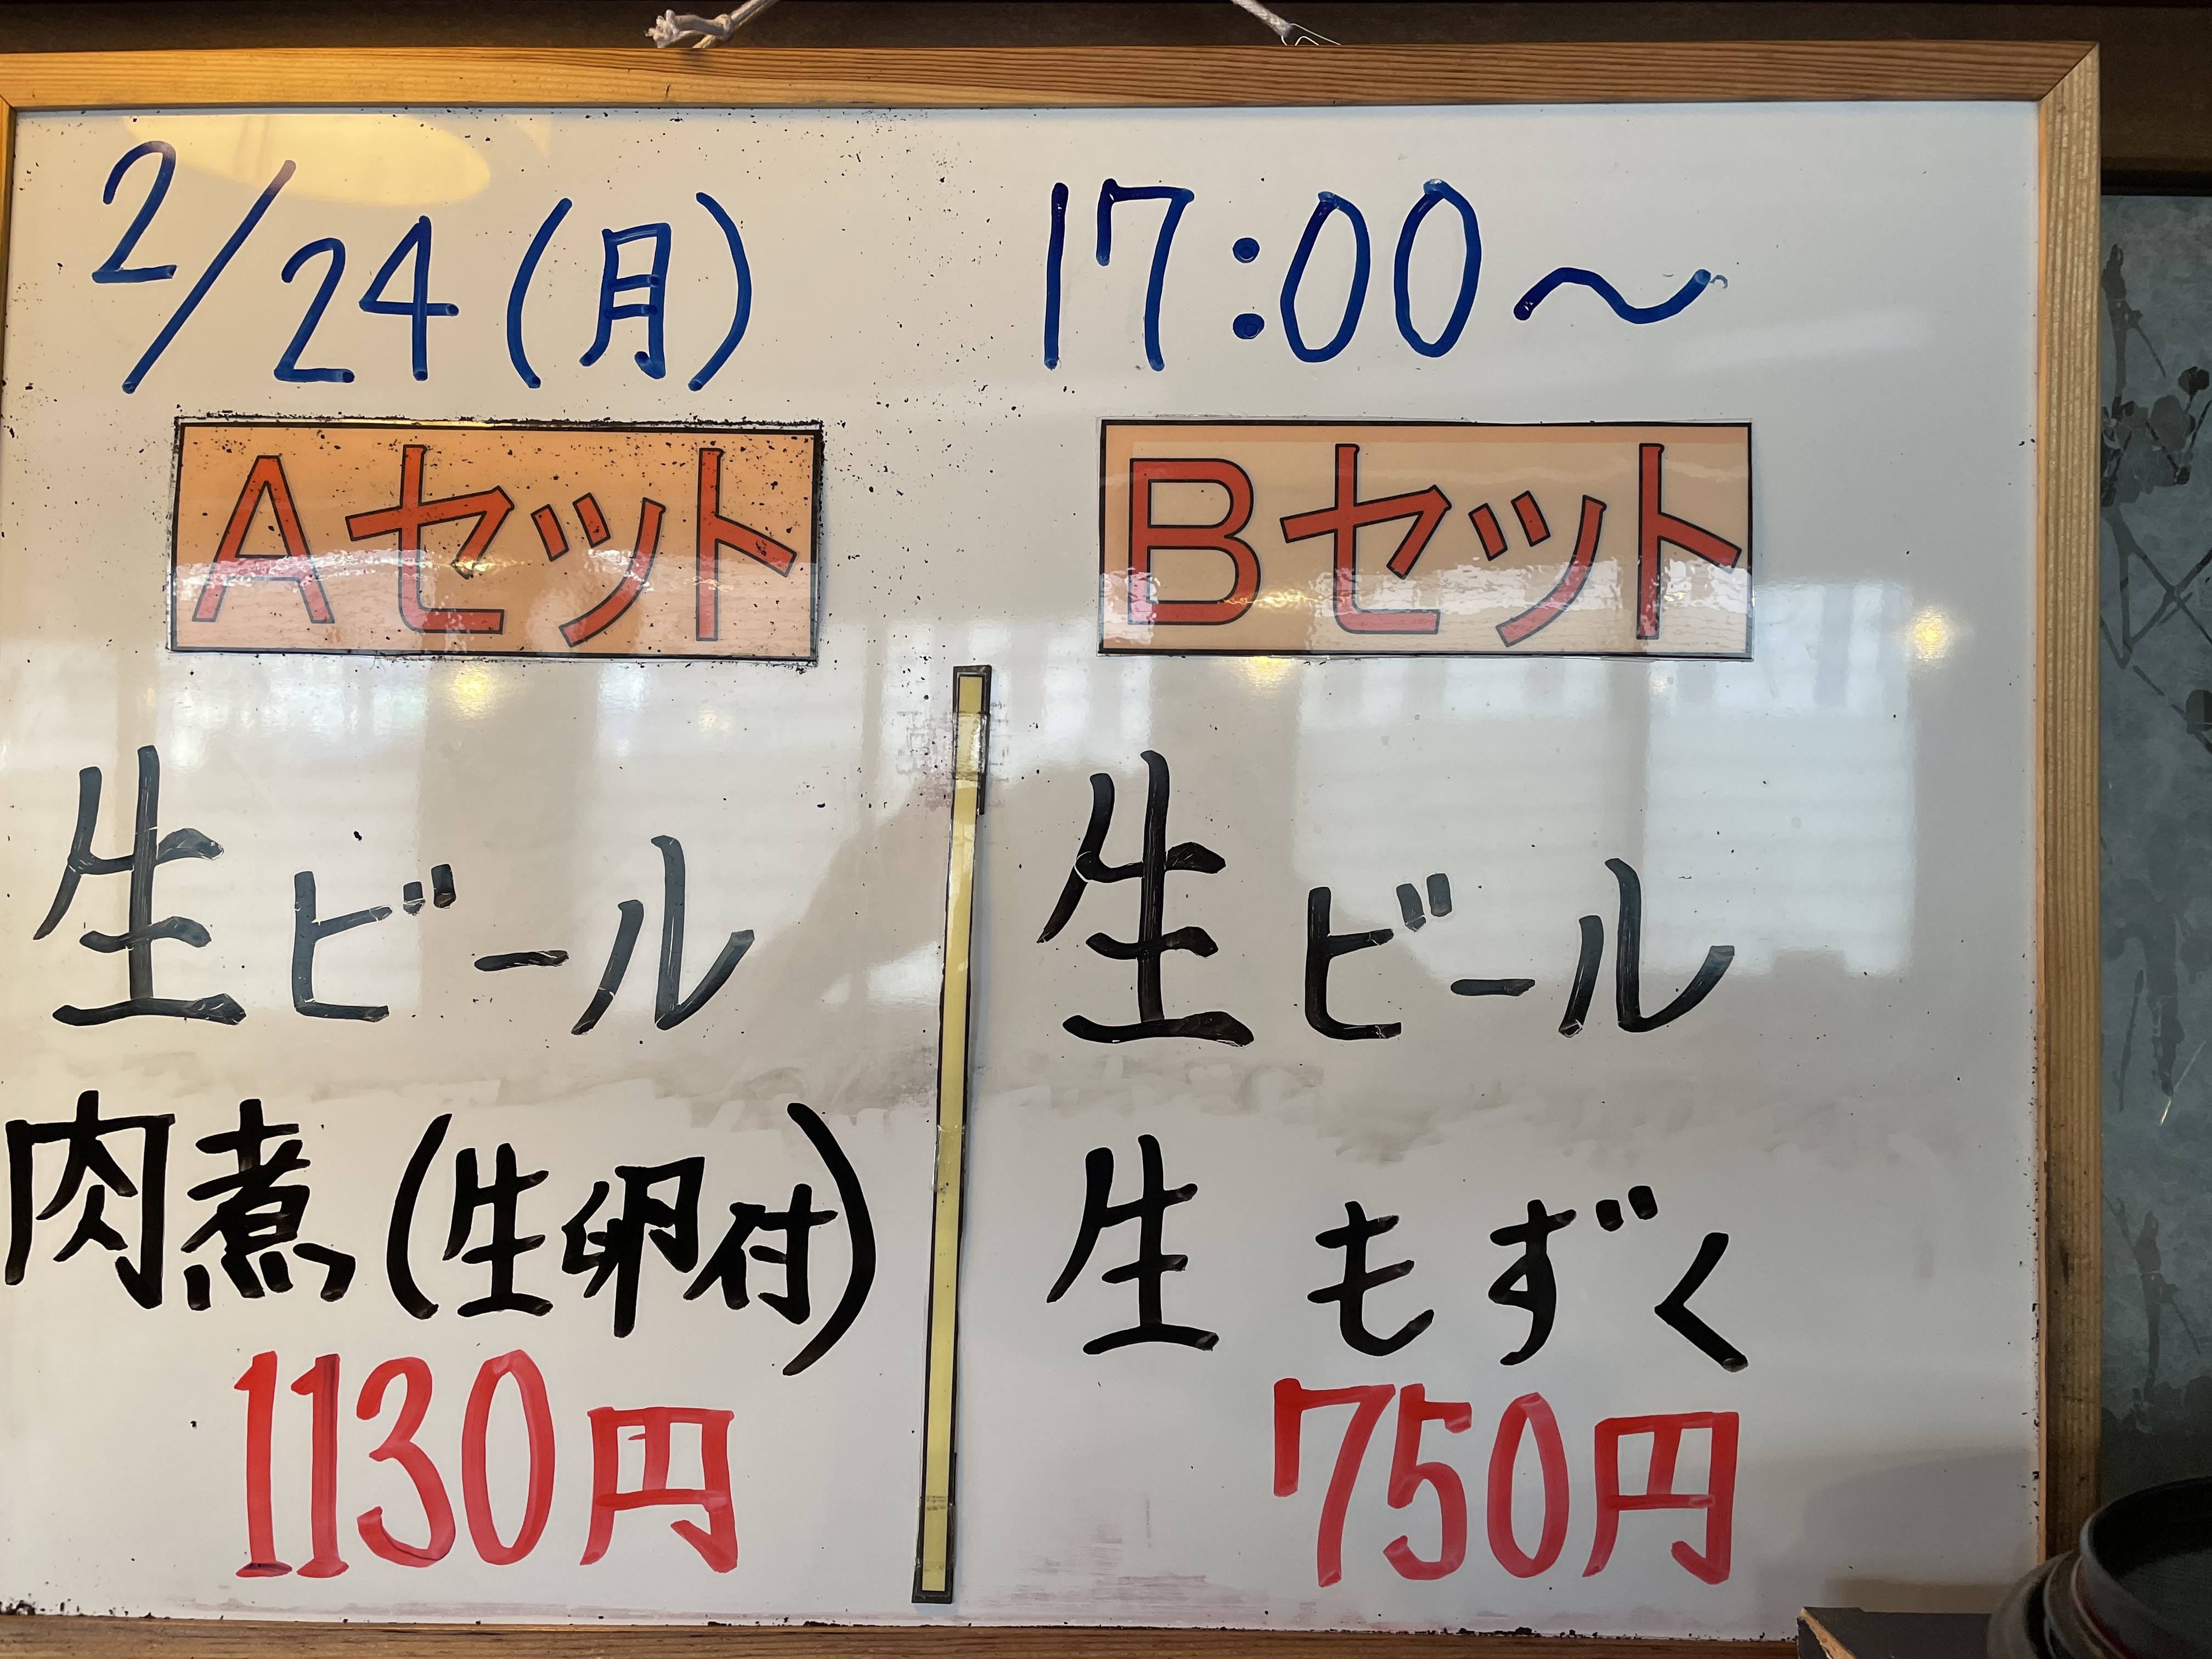 2/24(月) 17:00～
Aセット
生ビール
肉煮(生卵付)
1130円
Bセット
生ビール
生もずく
750円